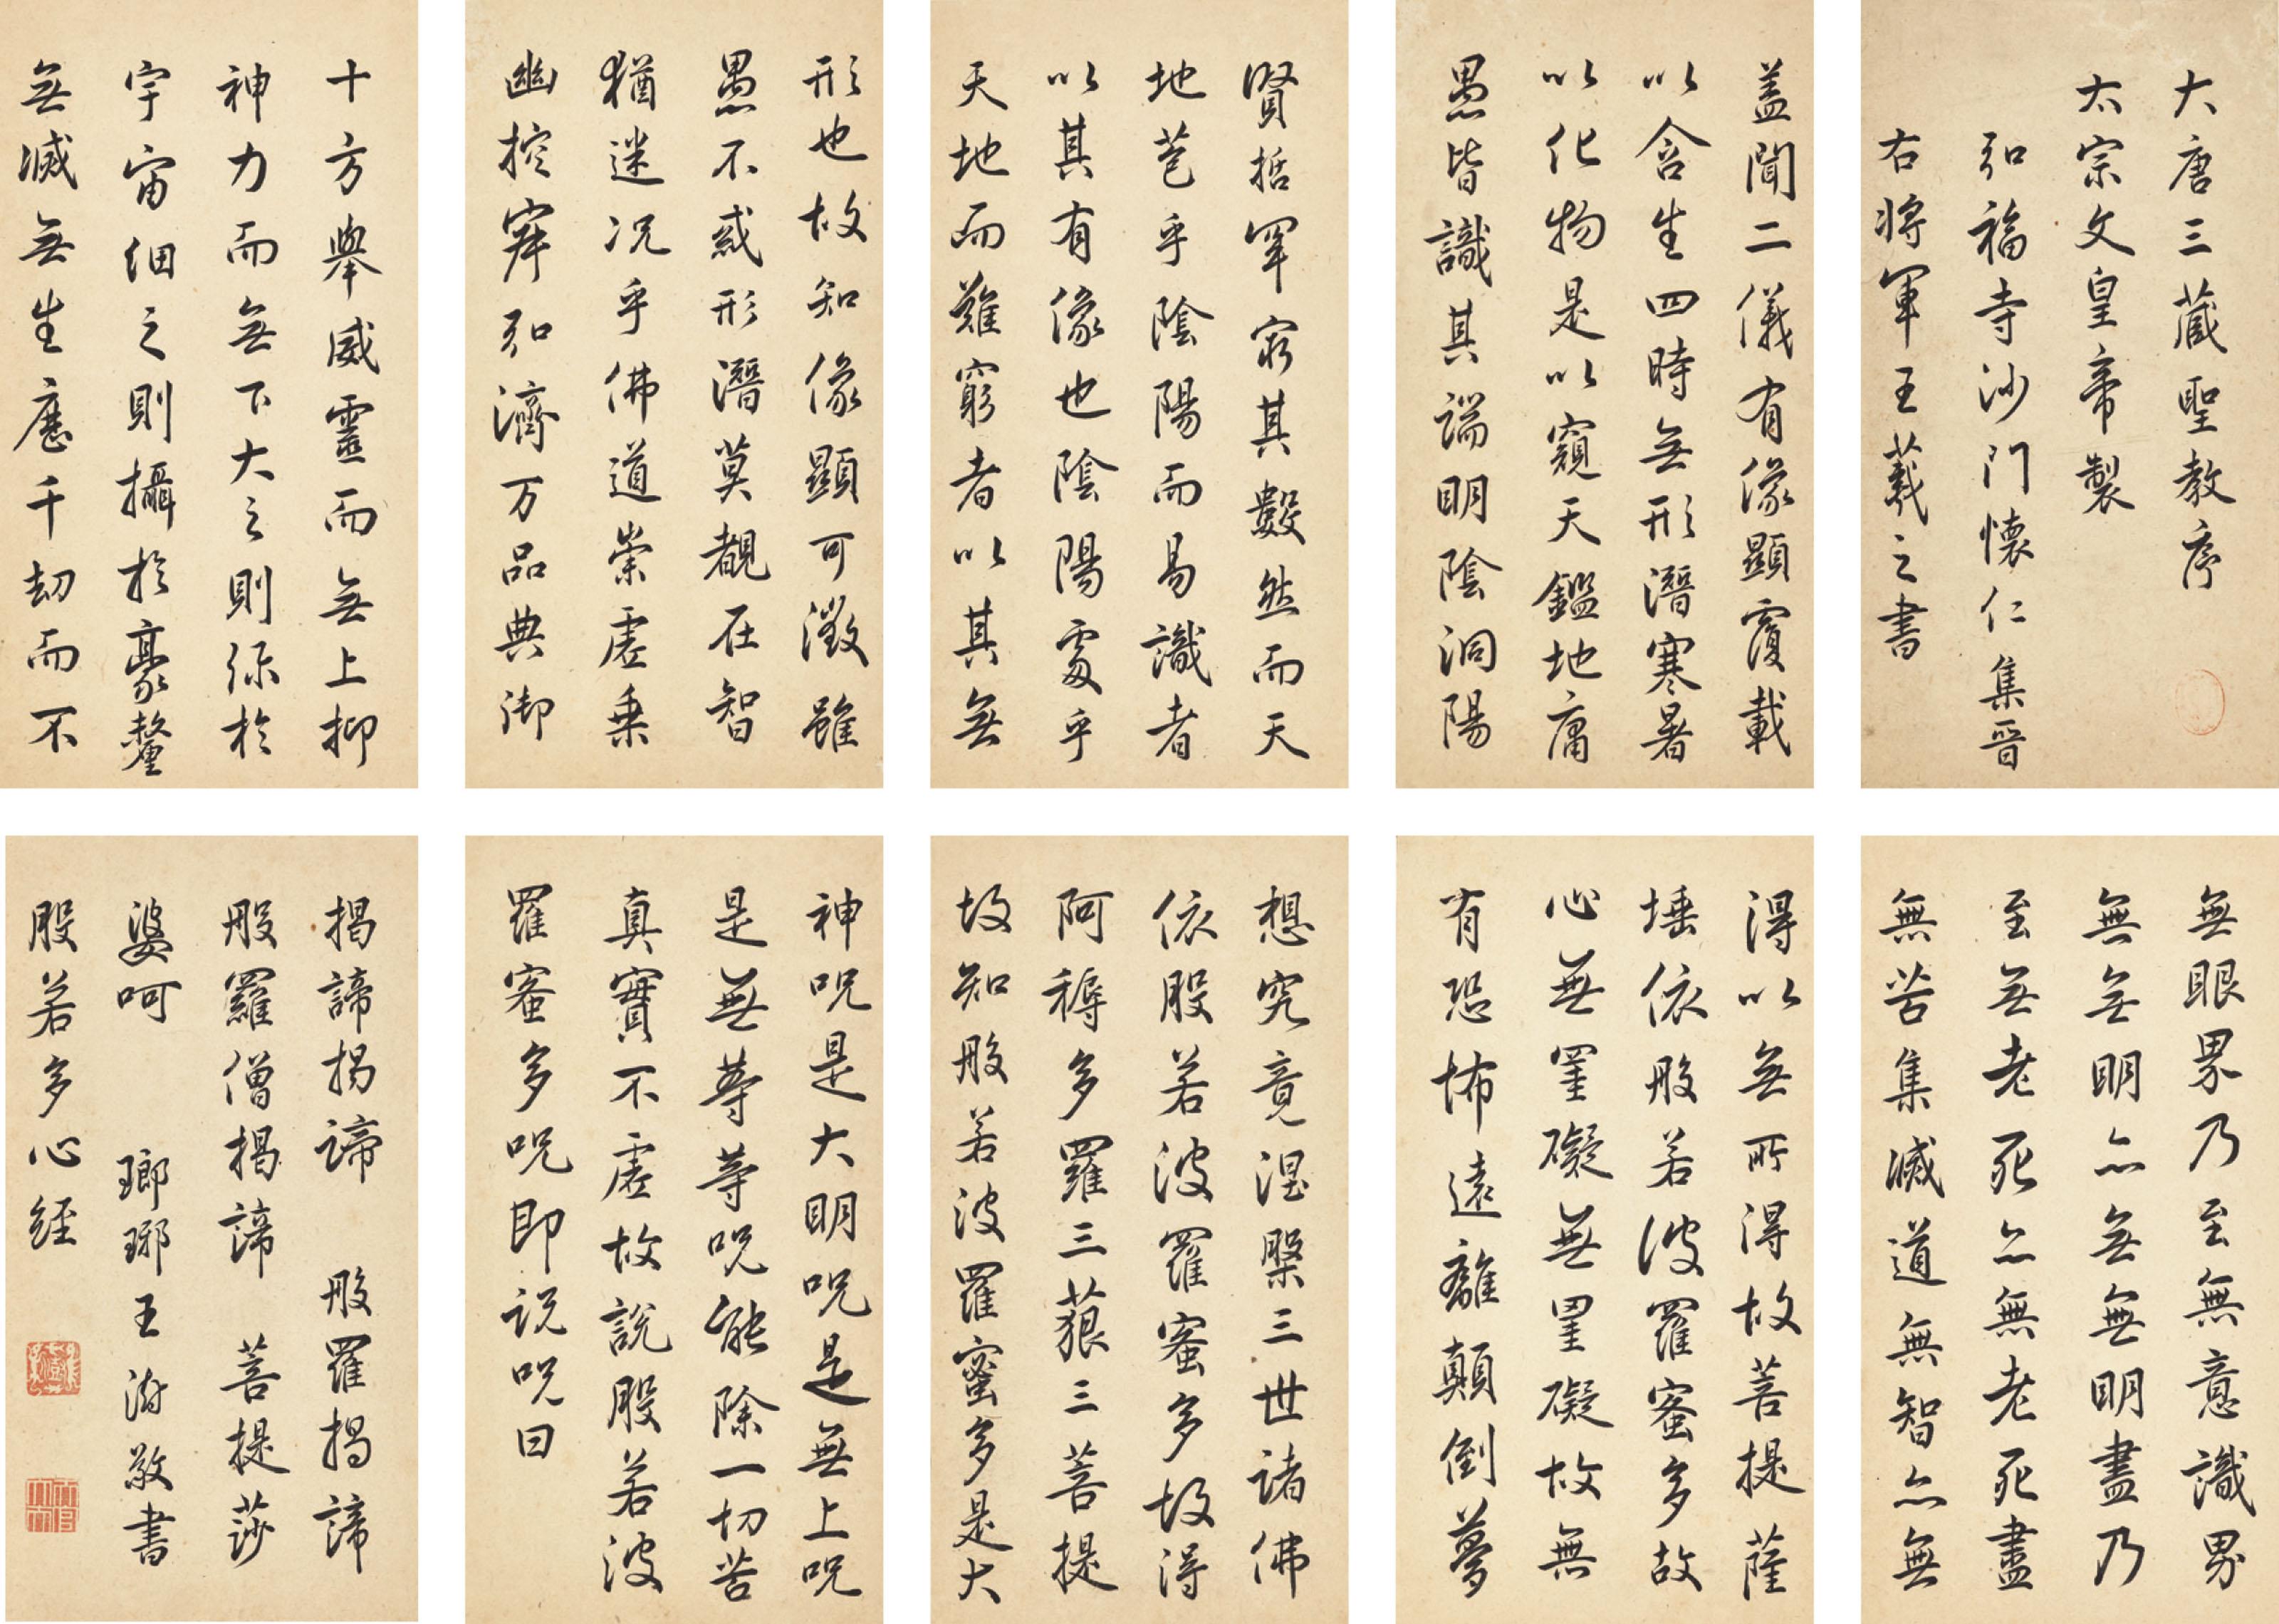 大唐三藏聖教序
太宗文皇帝製
弘福寺沙門懷仁集晉
右将軍王羲之書
盖聞二儀有像顯覆載
以含生四時無形潛寒暑
以化物是以窺天鑑地庸
愚皆識其端明陰洞陽
賢哲罕窮其數然而天
地苞乎陰陽而易識者
以其有像也陰陽處乎
天地而難窮者以其無
形也故知像顯可徵雖
愚不惑形潛莫覩在智
猶迷况乎佛道崇虛乗
幽控寂弘濟万品典御
十方舉威靈而無上抑
神力而無下大之則弥於
宇宙細之則攝於豪釐
無滅無生歷千劫而不
無眼界乃至無意識界
無無明亦無無明盡乃
至無老死亦無老死盡
無苦集滅道無智亦無
得以無所得故菩提薩
埵依般若波羅蜜多故
心無罣礙無罣礙故無
有恐怖遠離顛倒夢
想究竟涅槃三世諸佛
依般若波羅蜜多故得
阿耨多羅三藐三菩提
故知般若波羅蜜多是大
神呪是大明呪是無上呪
是無等等呪能除一切苦
真實不虛故說般若波
羅蜜多呪即說呪曰
揭諦揭諦 般羅揭諦
般羅僧揭諦 菩提莎
婆呵 瑯琊王澍敬書
般若多心経